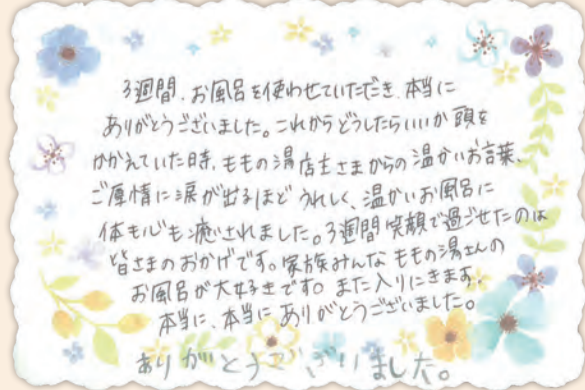 3週間、お風呂を使わせていただき、本当に
ありがとうございました。これからどうしたらいいか頭を
かかえていた時、ももの湯店主さまからの温かいお言葉、
ご厚情に涙が出るほどうれしく、温かいお風呂に
体も心も癒されました。3週間笑顔で過ごせたのは
皆さまのおかげです。家族みんなももの湯さんの
お風呂が大好きです。また入りにきます。
本当に、本当にありがとうございました。
ありがとうございました。